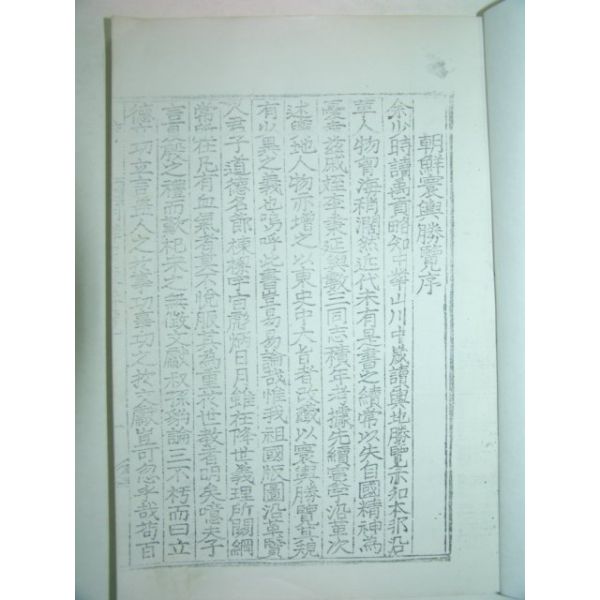 朝鮮寰輿勝覽序
余少時讀禹貢略知中華山川中歲讀輿地勝覽亦知本邦沿
革人物嶺海稍濶然近代未有是書之續常以失自國精神為
憂玆戚姪李秉延與數三同志積年考據先續官守沿革次
述輿地人物亦增之以東史中大旨者改纖以寰輿勝覽其規
有少異之義也嗚呼此書豈易易論哉惟我祖國版圖沿革覽
人君子道德名節棟樑宇宙彪炳日月雖在降世義理所關綱
常所在凡有血氣者莫不悅服其為重於世教者明矣噫夫子
言夏殷之禮而歎杞宋之無徵文獻叔孫豹論三不朽而曰立
德立功立言盖人之於事功事功之於文獻豈可忽乎哉苟百